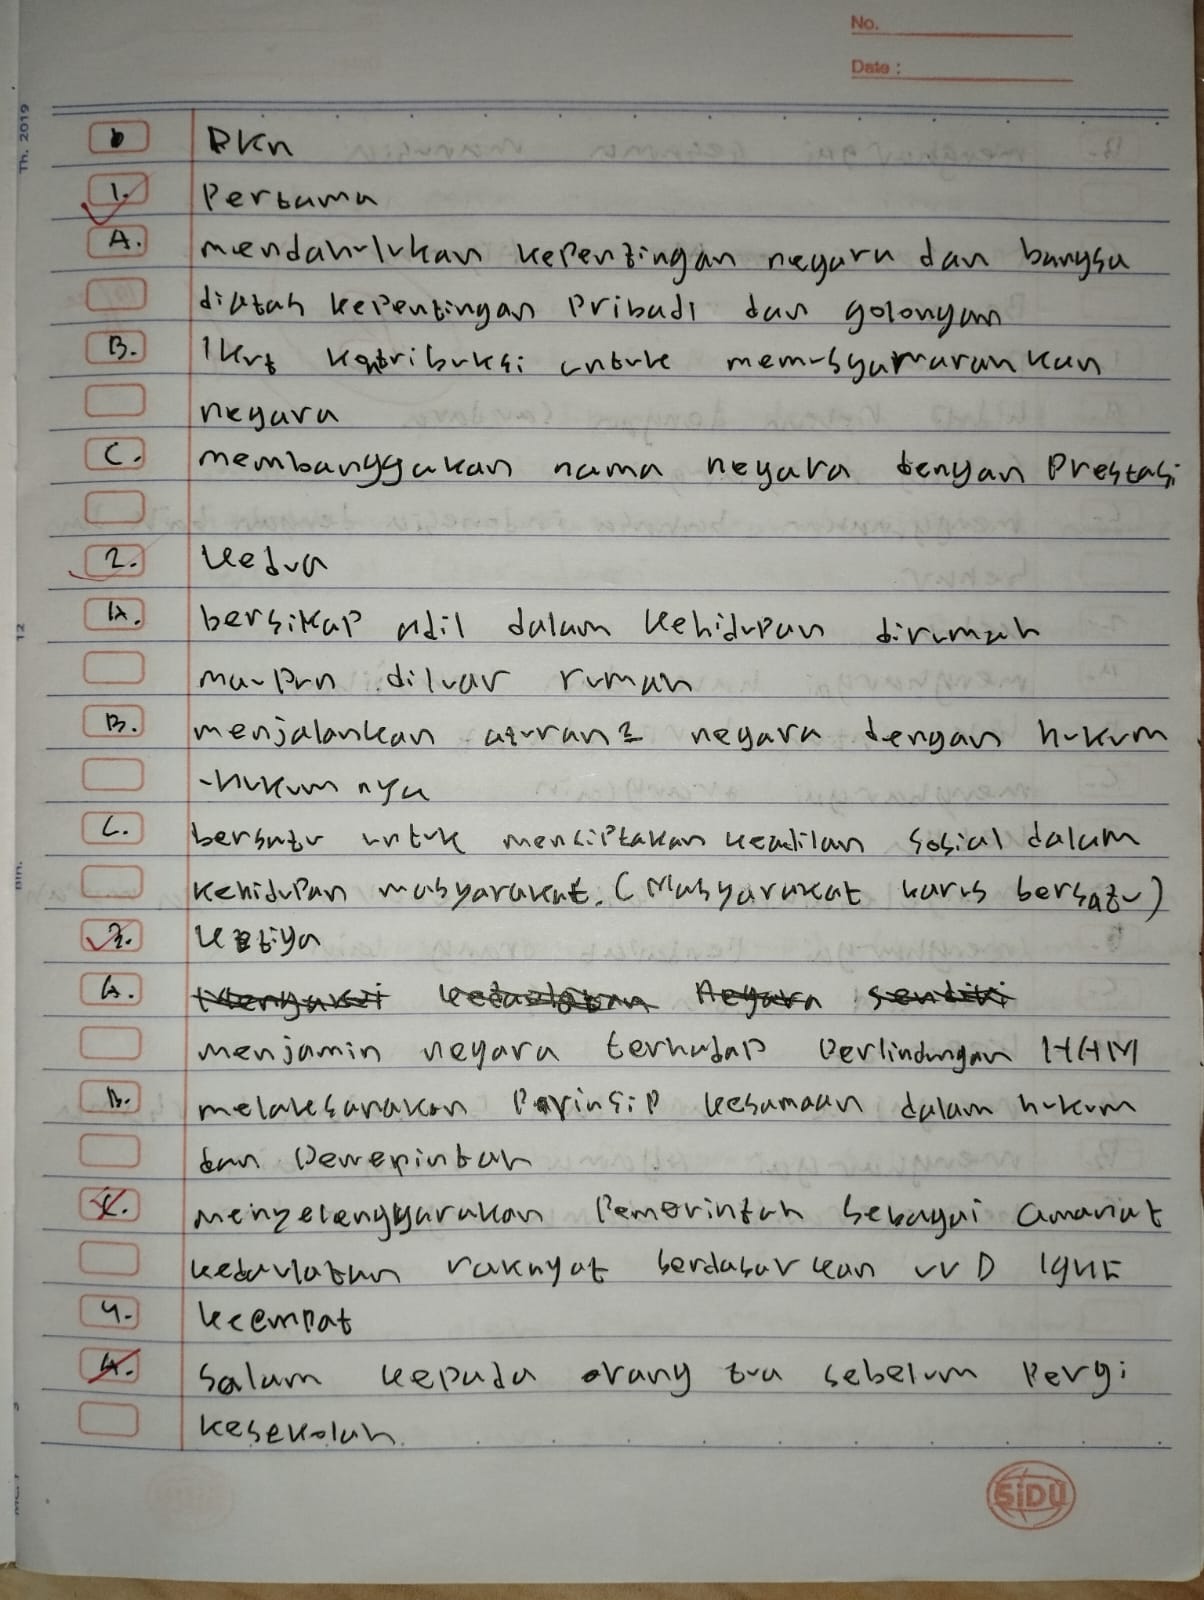 No.
Date :
Th. 2019
PKn
1. Pertama
A. mendahulukan kepentingan negara dan bangsa
diatah kepentingan Pribadi dan golongan
B. Ikut kontribuksi untuk memasyamarankan
negara
C. membanggakan nama negara dengan Prestasi
2. Kedua
A. bersikap adil dalam kehidupan dirumah
maupun diluar rumah
B. menjalankan aturan2 negara dengan hukum
-hukum nya
C. bersatu untuk menciptakan keadilan sosial dalam
kehidupan masyarakat. (Masyarakat harus bersatu)
3. Ketiga
A.
menjamin negara terhadap Perlindungan HAM
B. melaksanakan Prinsip kesamaan dalam hukum
dan Pemerintah
C. menyelenggarakan Pemerintah sebagai amanat
kedaulatan rakyat berdasarkan UUD 1945
4. keempat
A. Salam kepada orang tua sebelum Pergi
kesekolah.
SIDU